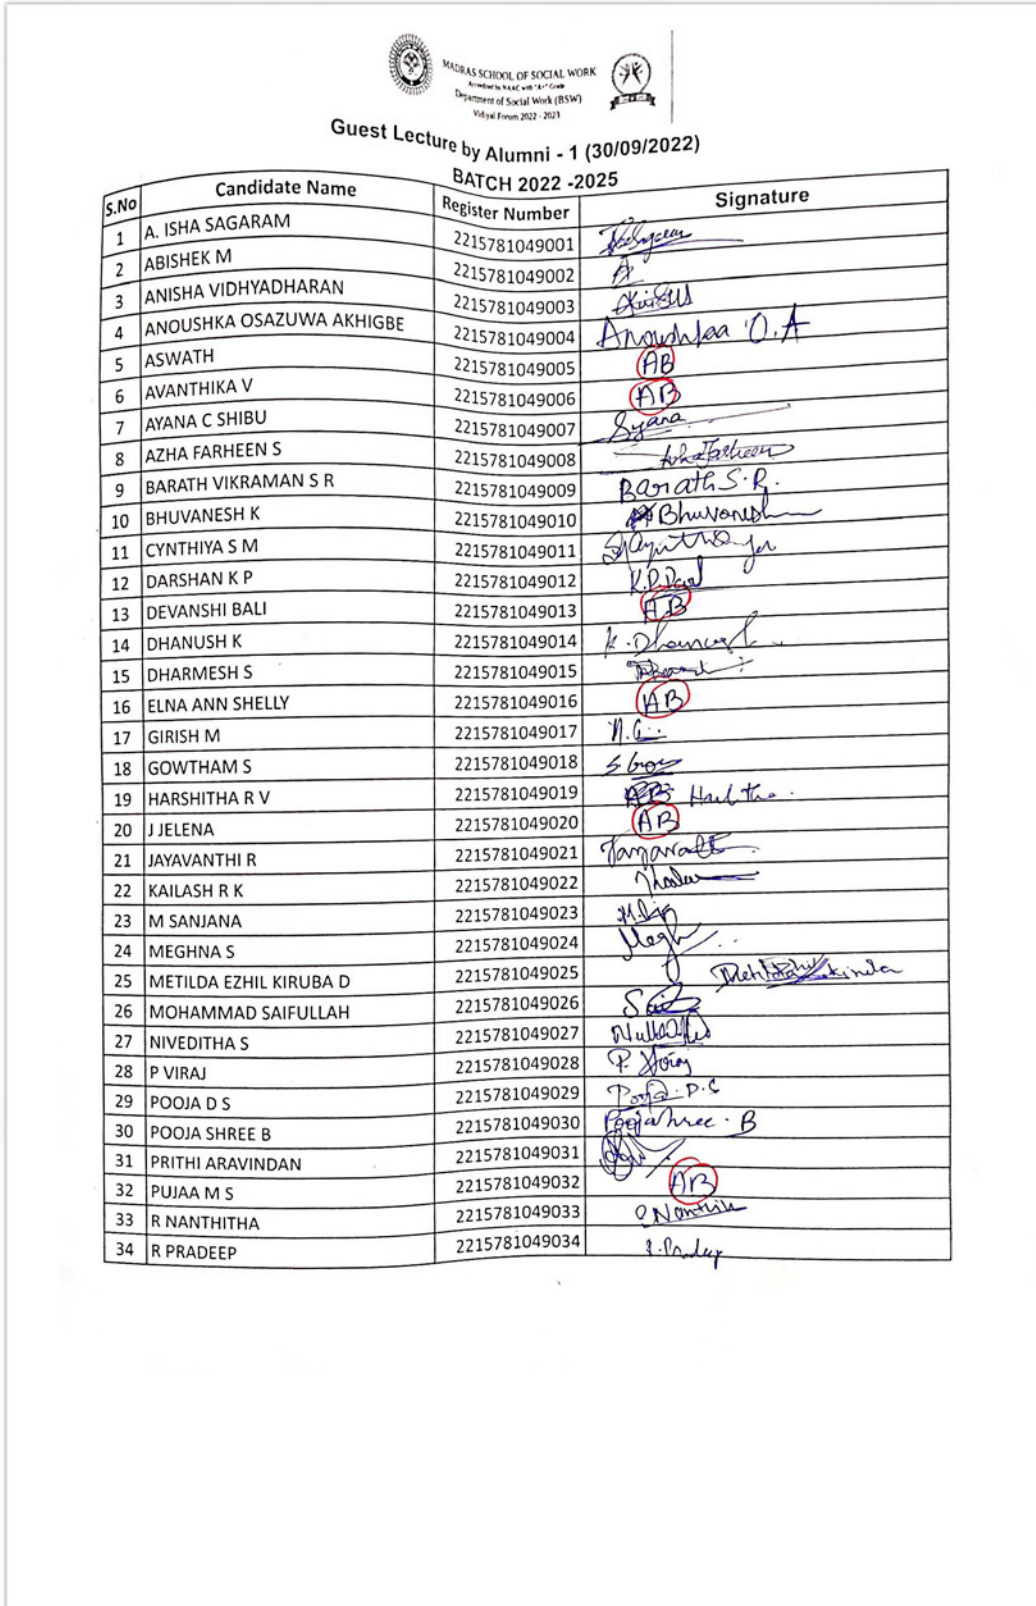 MADRAS SCHOOL OF SOCIAL WORK
Accredited by NAAC with "A+" Grade
Department of Social Work (BSW)
Vidiyal Forum 2022 - 2023
Guest Lecture by Alumni - 1 (30/09/2022)
BATCH 2022 -2025
S.No Candidate Name Register Number Signature
1 A. ISHA SAGARAM 2215781049001
2 ABISHEK M 2215781049002
3 ANISHA VIDHYADHARAN 2215781049003
4 ANOUSHKA OSAZUWA AKHIGBE 2215781049004 Anoushkaa O.A
5 ASWATH 2215781049005 AB
6 AVANTHIKA V 2215781049006 AB
7 AYANA C SHIBU 2215781049007
8 AZHA FARHEEN S 2215781049008
9 BARATH VIKRAMAN S R 2215781049009 Barath S.R.
10 BHUVANESH K 2215781049010 Bhuvanesh
11 CYNTHIYA S M 2215781049011
12 DARSHAN K P 2215781049012
13 DEVANSHI BALI 2215781049013 AB
14 DHANUSH K 2215781049014 K. Dhanush
15 DHARMESH S 2215781049015
16 ELNA ANN SHELLY 2215781049016 AB
17 GIRISH M 2215781049017
18 GOWTHAM S 2215781049018
19 HARSHITHA R V 2215781049019
20 J JELENA 2215781049020 AB
21 JAYAVANTHI R 2215781049021
22 KAILASH R K 2215781049022
23 M SANJANA 2215781049023
24 MEGHNA S 2215781049024 Megh
25 METILDA EZHIL KIRUBA D 2215781049025
26 MOHAMMAD SAIFULLAH 2215781049026
27 NIVEDITHA S 2215781049027
28 P VIRAJ 2215781049028 P. Viraj
29 POOJA D S 2215781049029 Pooja. D.S
30 POOJA SHREE B 2215781049030 Poojashree. B
31 PRITHI ARAVINDAN 2215781049031
32 PUJAA M S 2215781049032 AB
33 R NANTHITHA 2215781049033
34 R PRADEEP 2215781049034 R. Pradeep